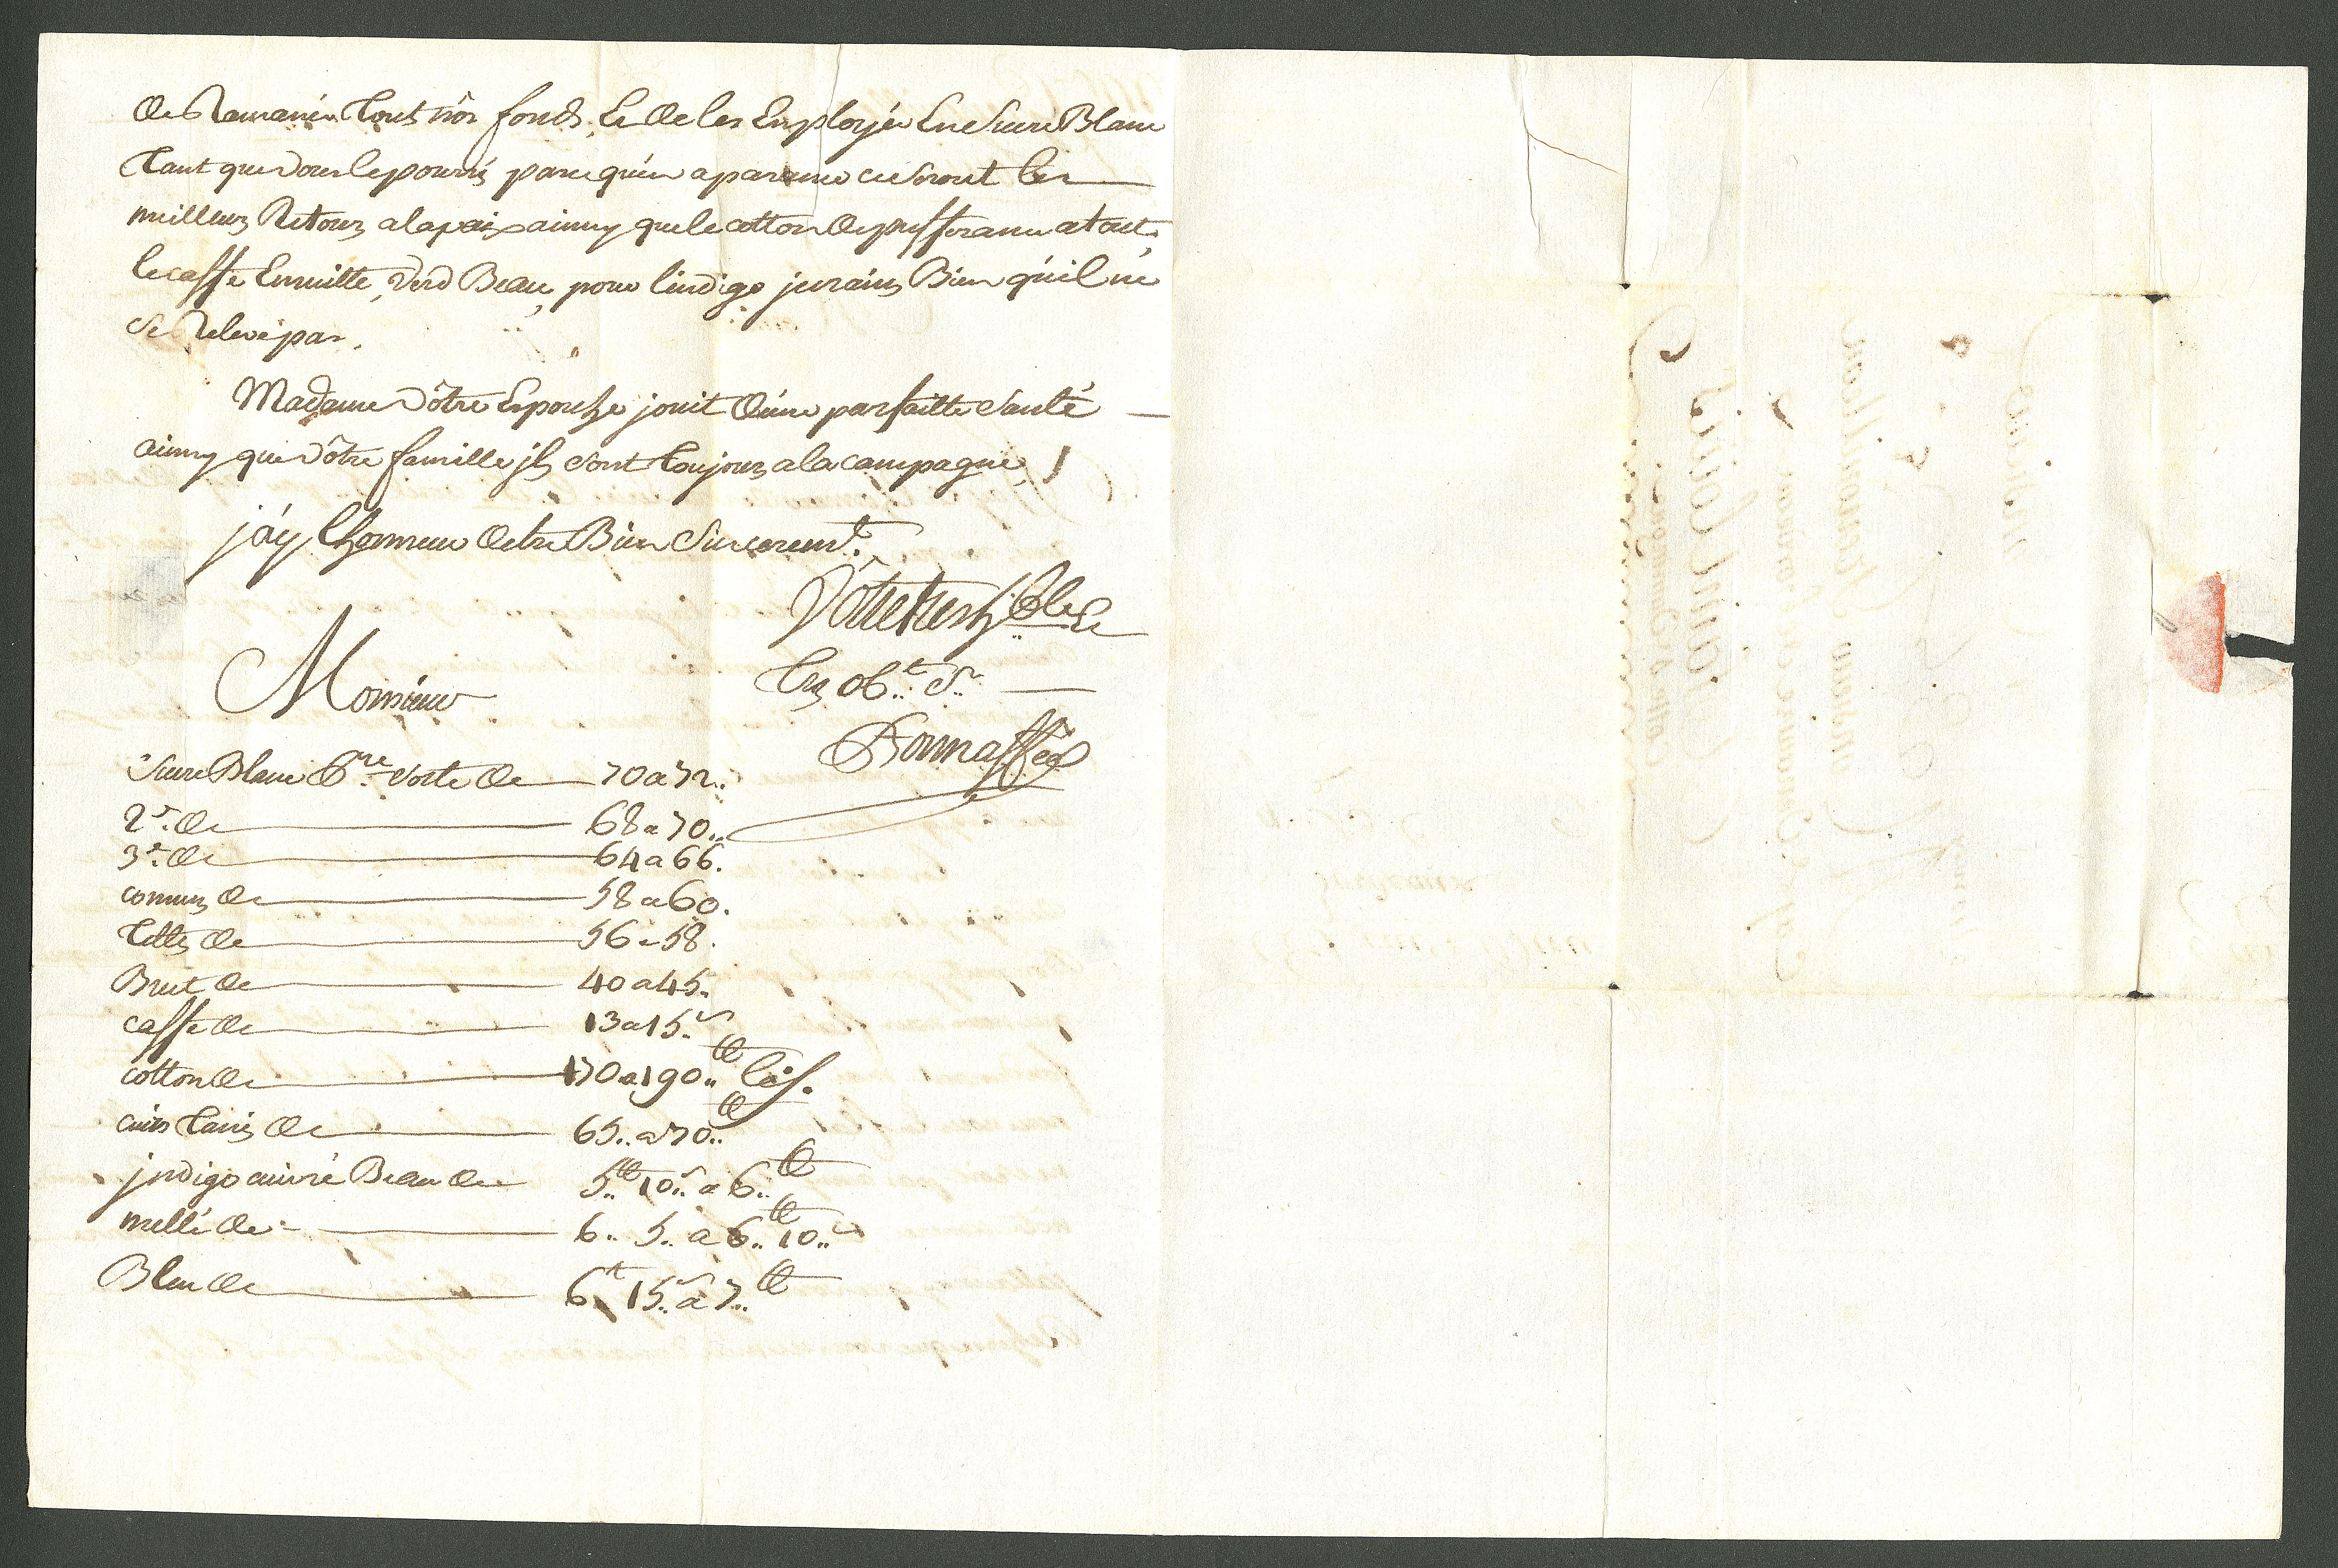 de Ramanér Tout nôs fonds, Et de les Employér En Sucre Blanc
Tant que vous le pourrés parcequ'en aparance ce seront les
meilleurs Retours a la paix ainsy que le cotton de presferance a tout,
le caffé Ensuitte, verd Beau, pour l'indigo je crains Bien qu'il ne
Se Releve pas.
Madame vôtre Epouse jouit d'une parfaitte santé
ainsy que vôtre famille jls sont Toujours a la campagne,
j'ay l'honneur detre Bien Sincerem.t
Vôtre tres h.ble &
Tres ob.t S.r
Monsieur
Bonnaffée
Sucre Blanc P.re Sorte de 70 a 72..
2.e de 68 a 70..
3.e de 64 a 66.
comuns de 58 a 60.
Tettes de 56 a 58.
Brut de 40 a 45.
caffé de 13 a 15.s
cotton de 170 a 190..tt
cuirs Tanés de 65.. a 70..tt
jndigo cuivré Beau de 5..tt 10..s a 6..tt
mellé de 6.. 5.. a 6..tt 10..s
Bleu de 6.t 15.s a 7..tt